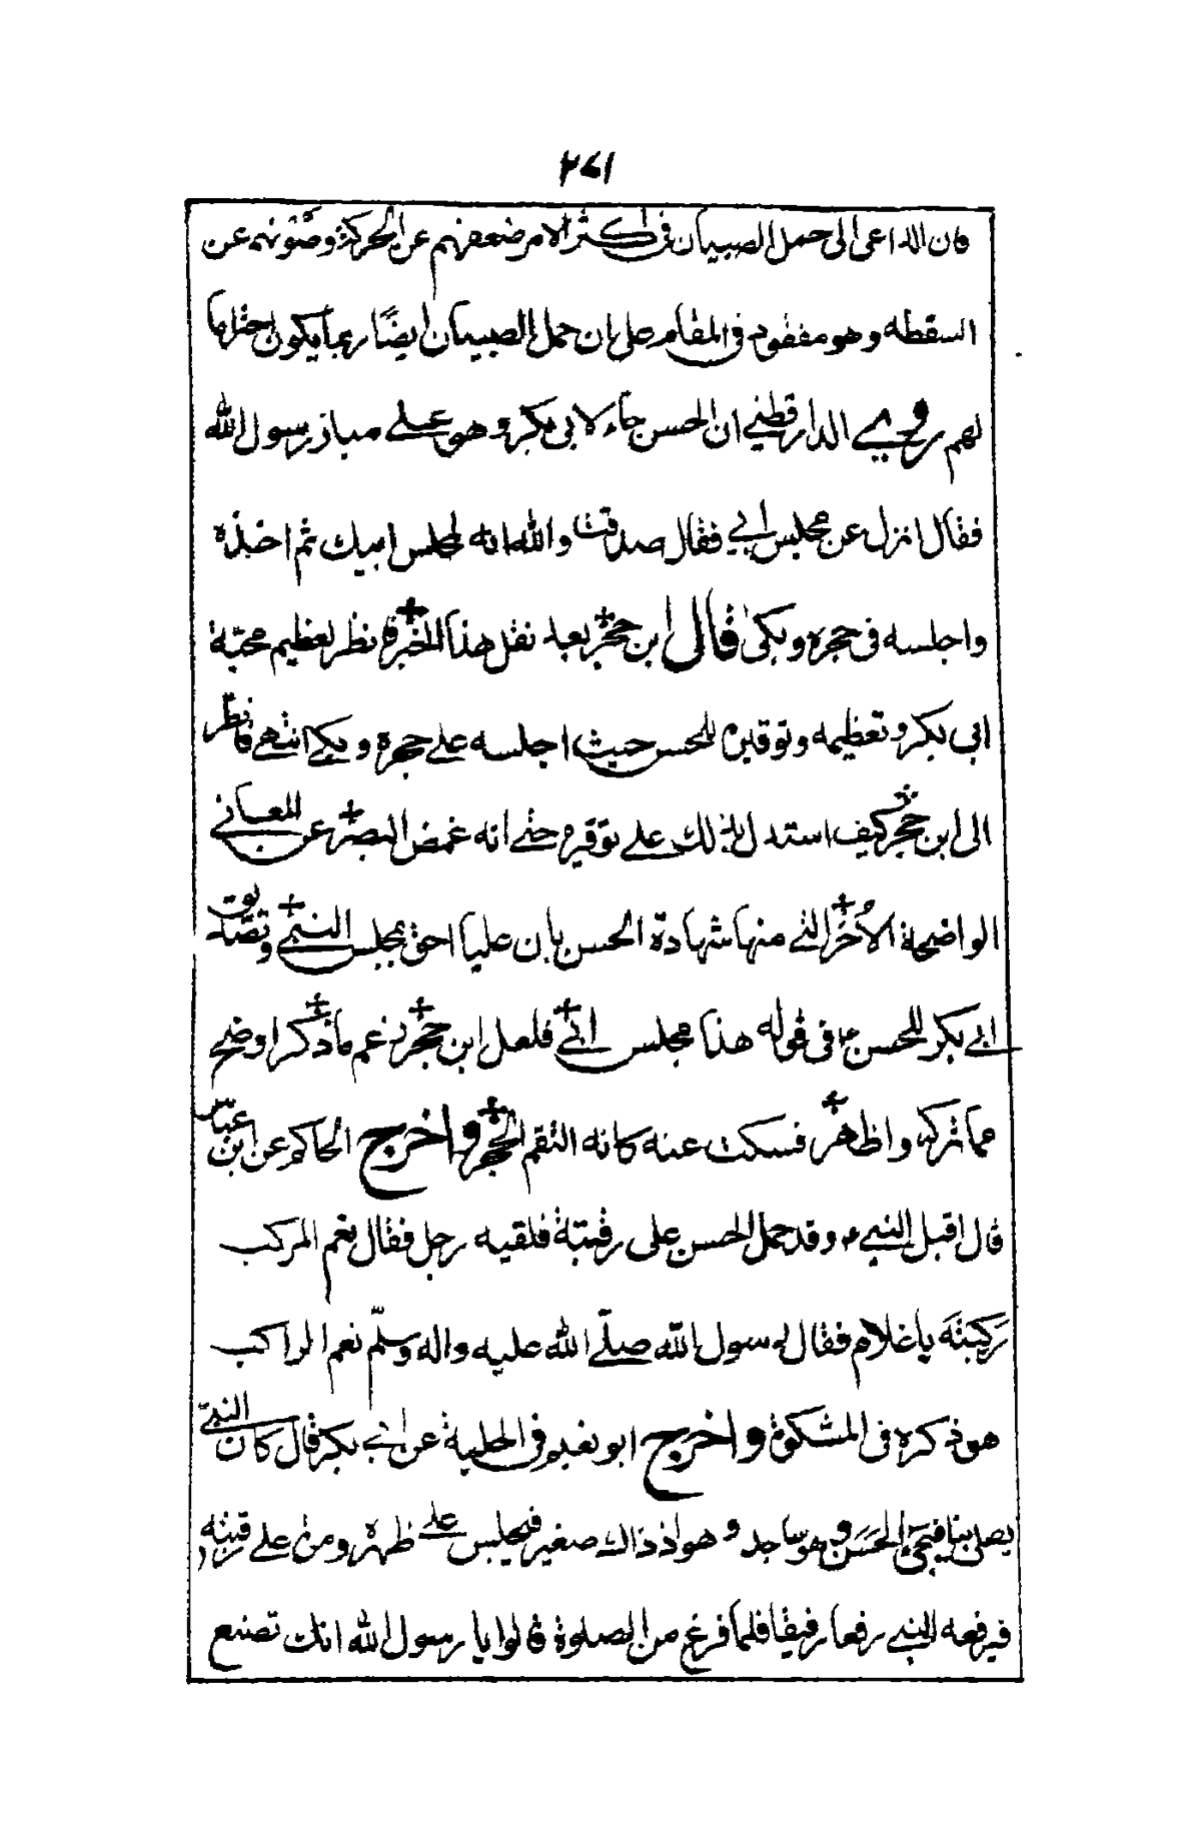 ٢٧١
فان الداعى الى حمل الصبيان فى اكثر الامر ضعفهم عن الحركة وصونهم عن
السقطه وهو مفقود فى المقام على ان حمل الصبيان ايضًا ربما يكون اجلالها
لهم روى الدارقطني ان الحسن جآء لابى بكر وهو على منبر رسول الله
فقال انزل عن مجلس ابي فقال صدقت والله انه لمجلس ابيك ثم اخذه
واجلسه فى حجره وبكى قال ابن حجر بعد نقل هذا الخبر فانظر لعظيم محبّة
ابى بكر وتعظيمه وتوقيره للحسن حيث اجلسه على حجره وبكى انتهى فانظر
الى ابن حجر كيف استدل بذلك على توقيره حتى انه غمض البصر عن المعانى
الواضحة الاُخر التى منها شهادة الحسن بان عليا احق بمجلس النبى وتصديق
ابى بكر للحسن ع فى قوله هذا مجلس ابى فلعل ابن حجر زعم ما ذكر اوضح
مما تركه واظهر فسكت عنه كانه التقم الحجر واخرج الحاكم عن ابن عباس
قال اقبل النبى ص وقد حمل الحسن على رقبتة فلقيه رجل فقال نعم المركب
رَكِبْتَه ياغلام فقال رسول الله صلّى الله عليه واله وسلّم نعم الراكب
هو ذكره فى المشكوة واخرج ابو نعيم فى الحلية عن ابى بكر قال كان النبىّ
يصلى بنا فيجئ الحَسَن وهو ساجد وهو اذ ذاك صغير فيجلس على ظهره ومرة على رقبته
فيرفعه النبى رفعا رفيقا فلما فرغ من الصلوة قالوا يا رسول الله انك تصنع